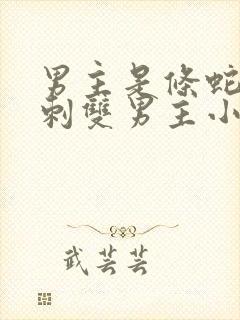 男主是條蛇
刺雙男主小
武芸芸